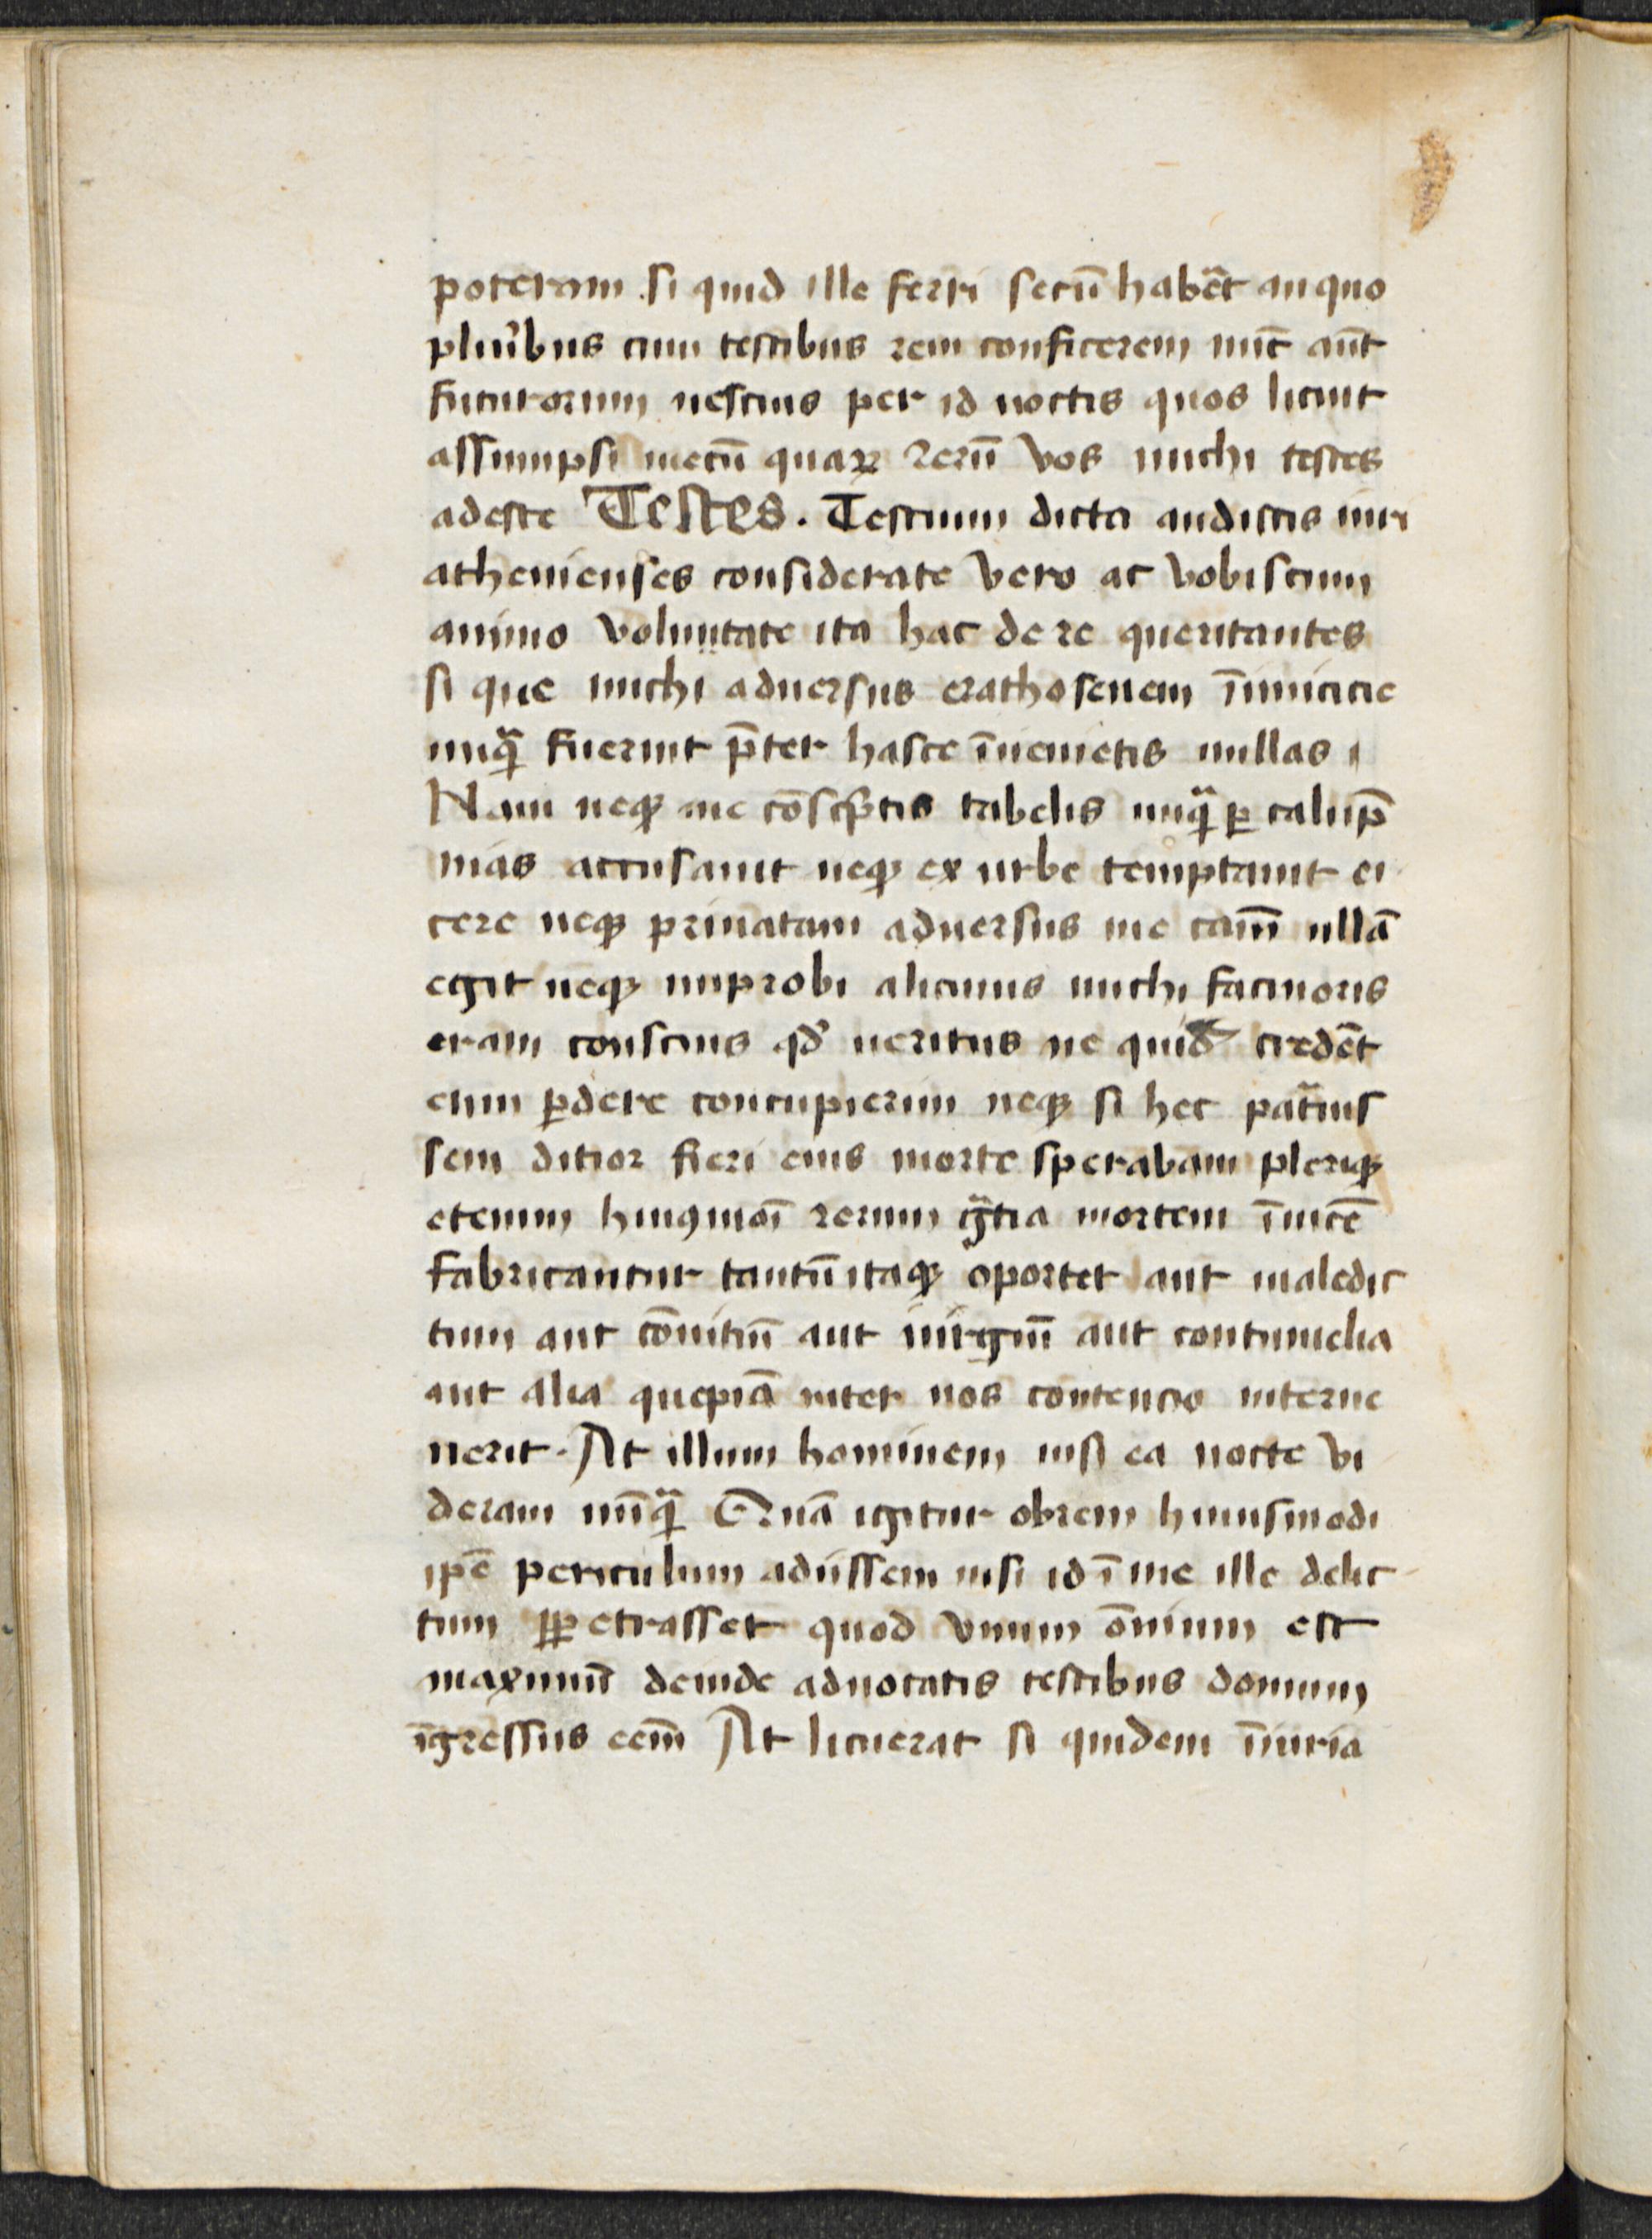 poteram si quid ille ferri secū habēt an quo
plurib̉us cum testibus rem conficerem nūc aūt
futurorum nescius per id noctis quos licuit
assumpsi mecū quaꝝ rerū vos michi testes
adeste Testes. Testium dicta audistis uiri
athenienses considerate vero ac vobiscum
animo voluntate ita hac de re queritantes
si que michi aduersus erathosenem īimicicie
nuqᷓ fuerint p̄ter hasce īuenietis nullas
Nam neqꝫ me cōscͥptis tabelis nuqᷓ ꝑ calūp
nias accusauit neqꝫ ex urbe temptauit ei
cere neqꝫ priuatam aduersus me cām̄ ullā
egit neqꝫ improbi alicuius michi facinoris
eram conscius qd̓ ueritus ne quid credēt
eum ꝑdere concupierim neqꝫ si hec patͣuis
sem ditior fieri eius morte sperabam pleriqꝫ
etenim huiꝰmōi rerum gᷓtia mortem īuicē
fabricantur tantū itaqꝫ oportet aut maledic
tum aut cōuitiū aut iurgiū aut contumelia
aut alia quepiā inter nos contencio interue
nerit. At illum hominem nisi ea nocte vi
deram nūqᷓ Quā igitur obrem huiusmodi
ip̄e periculum adiissem nisi id ī me ille delic
tum ꝑpetrasset quod vnum ōnium est
maximū deinde aduocatis testibus domum
īgressus eēm̄ At licuerat si quidem īiuria